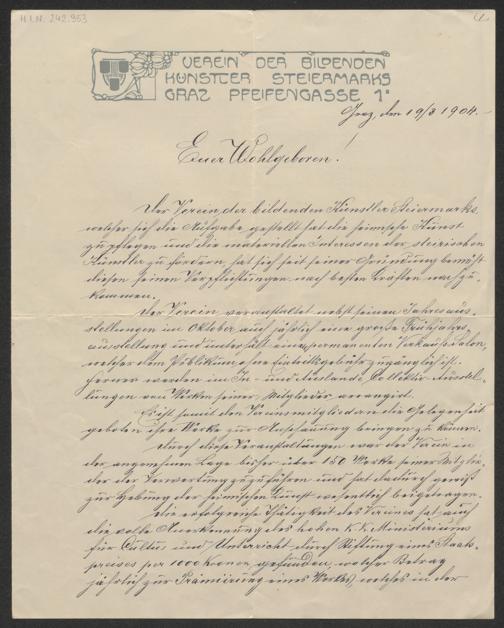 H.I.N. 242.953
VEREIN DER BILDENDEN
KÜNSTLER STEIERMARKS
GRAZ PFEIFENGASSE 1.
Graz, den 19/3 1904.
Euer Wohlgeboren!
Der Verein der bildenden Künstler Steiermarks,
welcher sich die Aufgabe gestellt hat die heimische Kunst
zu pflegen und die materiellen Interessen der steirischen
Künstler zu fördern, hat sich seit seiner Gründung bemüht
diesen seinen Verpflichtungen nach besten Kräften nachzu-
kommen.
Der Verein veranstaltet nebst seinen Jahresaus-
stellungen im Oktober auch jährlich eine große Frühjahrs-
ausstellung und unterhält einen permanenten Verkaufs-Salon,
welcher dem Publikum ohne Eintrittsgebühr zugänglich ist.
Ferner werden im In- und Auslande Kollektiv-Ausstel-
lungen von Werken seiner Mitglieder arrangirt.
Es ist somit den Vereinsmitgliedern die Gelegenheit
geboten ihre Werke zur Anschauung bringen zu können.
Durch diese Veranstaltungen war der Verein in
der angenehmen Lage bisher über 150 Werke seiner Mitglie-
der der Verwertung zuzuführen und hat dadurch gewiß
zur Hebung der heimischen Kunst wesentlich beigetragen.
Die erfolgreiche Thätigkeit des Vereines hat auch
die volle Anerkennung des hohen K.K. Ministeriums
für Cultus und Unterricht durch Stiftung eines Staats-
preises per 1000 Kronen gefunden, welcher Betrag
jährlich zur Prämiirung eines Werkes, welches in der